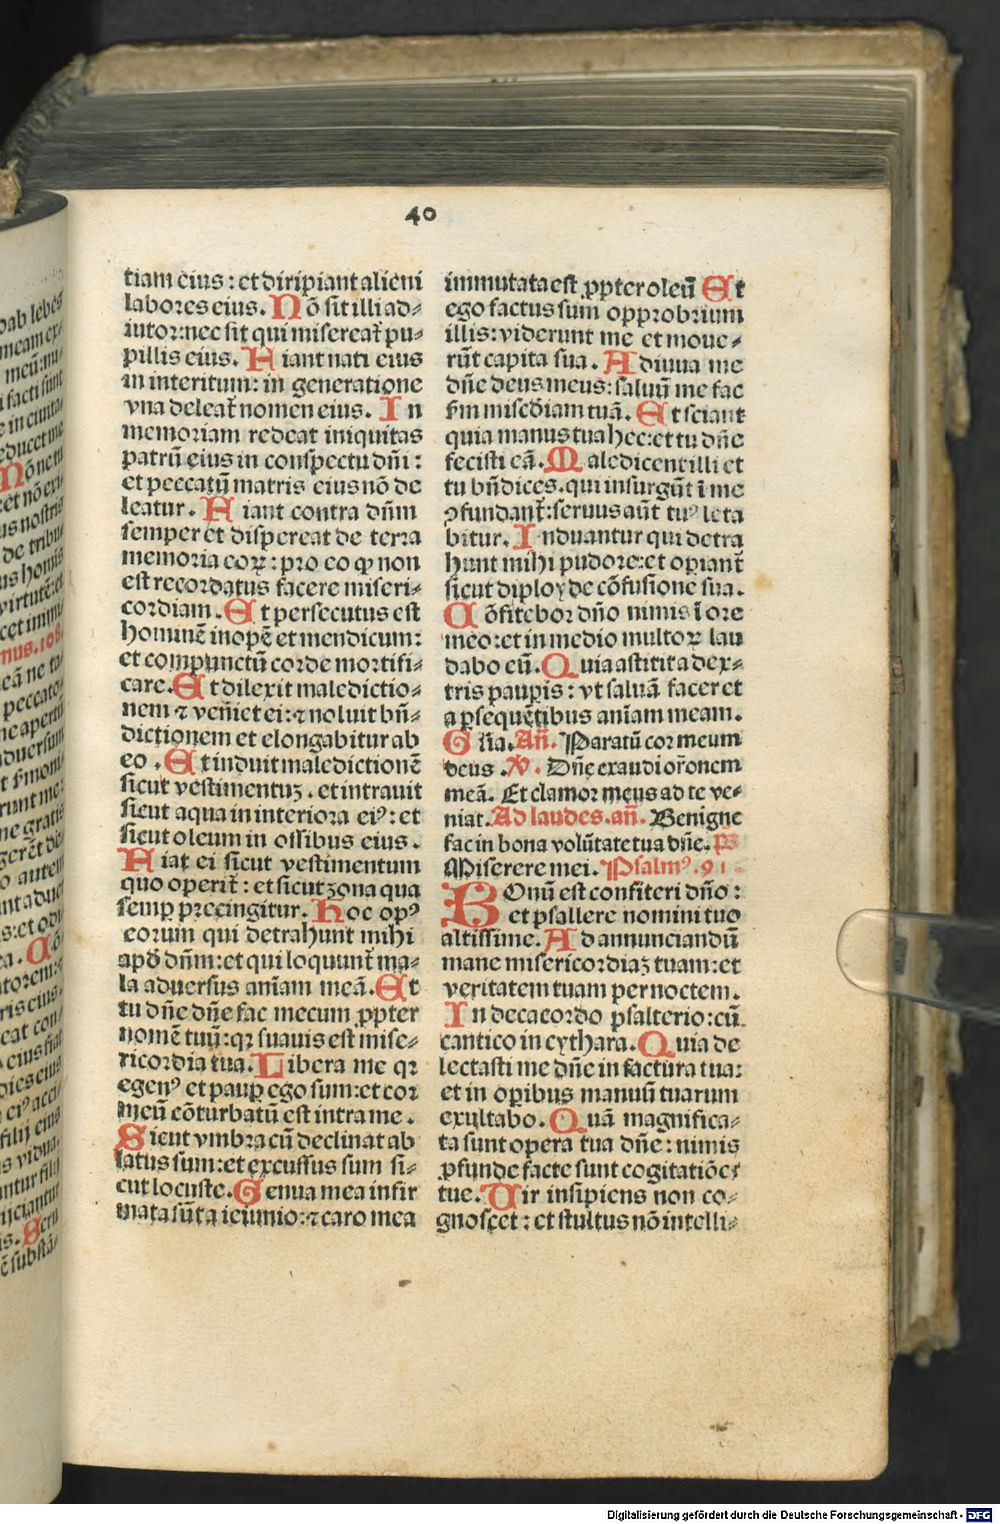 40
tiam eius: et diripiant alieni
labores eius. Nō sit illi ad⸗
iutor: nec sit qui misereat᷑ pu⸗
pillis eius. Fiant nati eius
in interitum: in generatione
vna deleat᷑ nomen eius. In
memoriam redeat iniquitas
patrū eius in conspectu dn̄i:
et peccatū matris eius nō de
leatur. Fiant contra dn̄m
semper et dispereat de terra
memoria eoꝝ: pro eo ꝙ non
est recordatus facere miseri⸗
cordiam. Et persecutus est
hominē inopē et mendicum:
et compunctū corde mortifi⸗
care. Et dilexit maledictio⸗
nem ⁊ veniet ei: ⁊ noluit bn̄⸗
dictionem et elongabitur ab
eo. Et induit maledictionē
sicut vestimentuꝫ. et intrauit
sicut aqua in interiora eiꝰ: et
sicut oleum in ossibus eius.
Fiat ei sicut vestimentum
quo operit᷑: et sicut zona qua
semꝑ precingitur. Hoc opꝰ
eorum qui detrahunt mihi
apd̄ dn̄m: et qui loquunt᷑ ma⸗
la aduersus aīam meā. Et
tu dn̄e dn̄e fac mecum ꝓpter
nomē tuū: qꝛ suauis est mise⸗
ricordia tua. Libera me qꝛ
egenꝰ et pauꝑ ego sum: et cor
meū cōturbatū est intra me.
Sicut vmbra cū declinat ab
latus sum: et excussus sum si⸗
cut locuste. Genua mea infir
mata sūt a ieiunio: ⁊ caro mea
immutata est ꝓpter oleū Et
ego factus sum opprobrium
illis: viderunt me et moue⸗
rūt capita sua. Adiuua me
dn̄e deus meus: saluū me fac
s̄m mis̄c̄diam tuā. Et sciant
quia manus tua hec: et tu dn̄e
fecisti eā. Maledicent illi et
tu bn̄dices. qui insurgūt ī me
ꝯfundant᷑: seruus aūt tuꝰ leta
bitur. Induantur qui detra
hunt mihi pudore: et opiant᷑
sicut diployde cōfusione sua.
Cōfitebor dn̄o nimis ī ore
meo: et in medio multoꝝ lau
dabo eū. Quia astitit a dex⸗
tris pauꝑis: vt saluā faceret
a ꝑsequētibus aīam meam.
Gl̄ia. An̄. Paratū cor meum
deus. ℣. Dn̄e exaudi or̄onem
meā. Et clamor meus ad te ve⸗
niat. Ad laudes. an̄. Benigne
fac in bona volūtate tua dn̄e. p̄s
Miserere mei. Psalmꝰ. 91
Bonū est confiteri dn̄o:
et psallere nomini tuo
altissime. Ad annunciandū
mane misericordiaꝫ tuam: et
veritatem tuam per noctem.
In decacordo psalterio: cū
cantico in cythara. Quia de
lectasti me dn̄e in factura tua:
et in operibus manuū tuarum
exultabo. Quā magnifica⸗
ta sunt opera tua dn̄e: nimis
ꝓfunde facte sunt cogitatiōes
tue. Vir insipiens non co⸗
gnoscet: et stultus nō intelli⸗
Digitalisierung gefördert durch die Deutsche Forschungsgemeinschaft - DFG